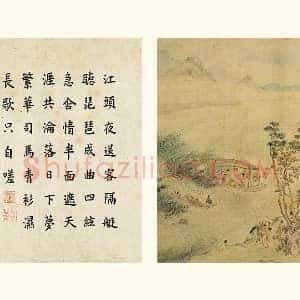 江頭夜送客隔艇
聽琵琶成曲四絃
急含情半面遮天
涯共淪落日下夢
繁華司馬青衫濕
長歌只自嗟
Shufaziliao.COM